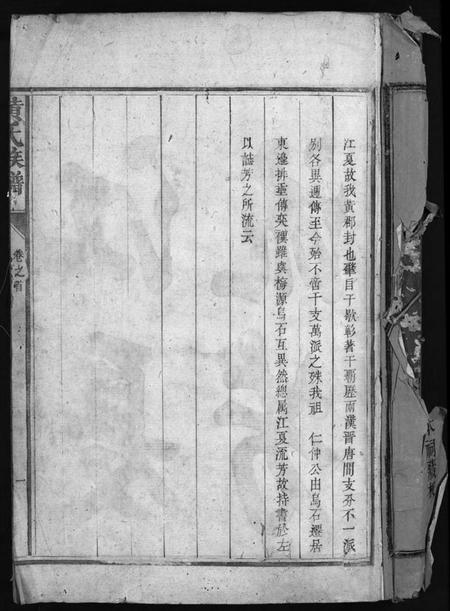 江夏故我黃郡封也肇目于歇彰著于霸歷兩漢晉唐間支分不一派
別各異週傳至今殆不啻千支萬派之殊我祖　仁仲公由烏石遷居
東邊排垂傳奕禩雖與梅源烏石互異然總属江夏流芳故持書於左
以誌芳之所流云
黃氏族譜
卷之首
一